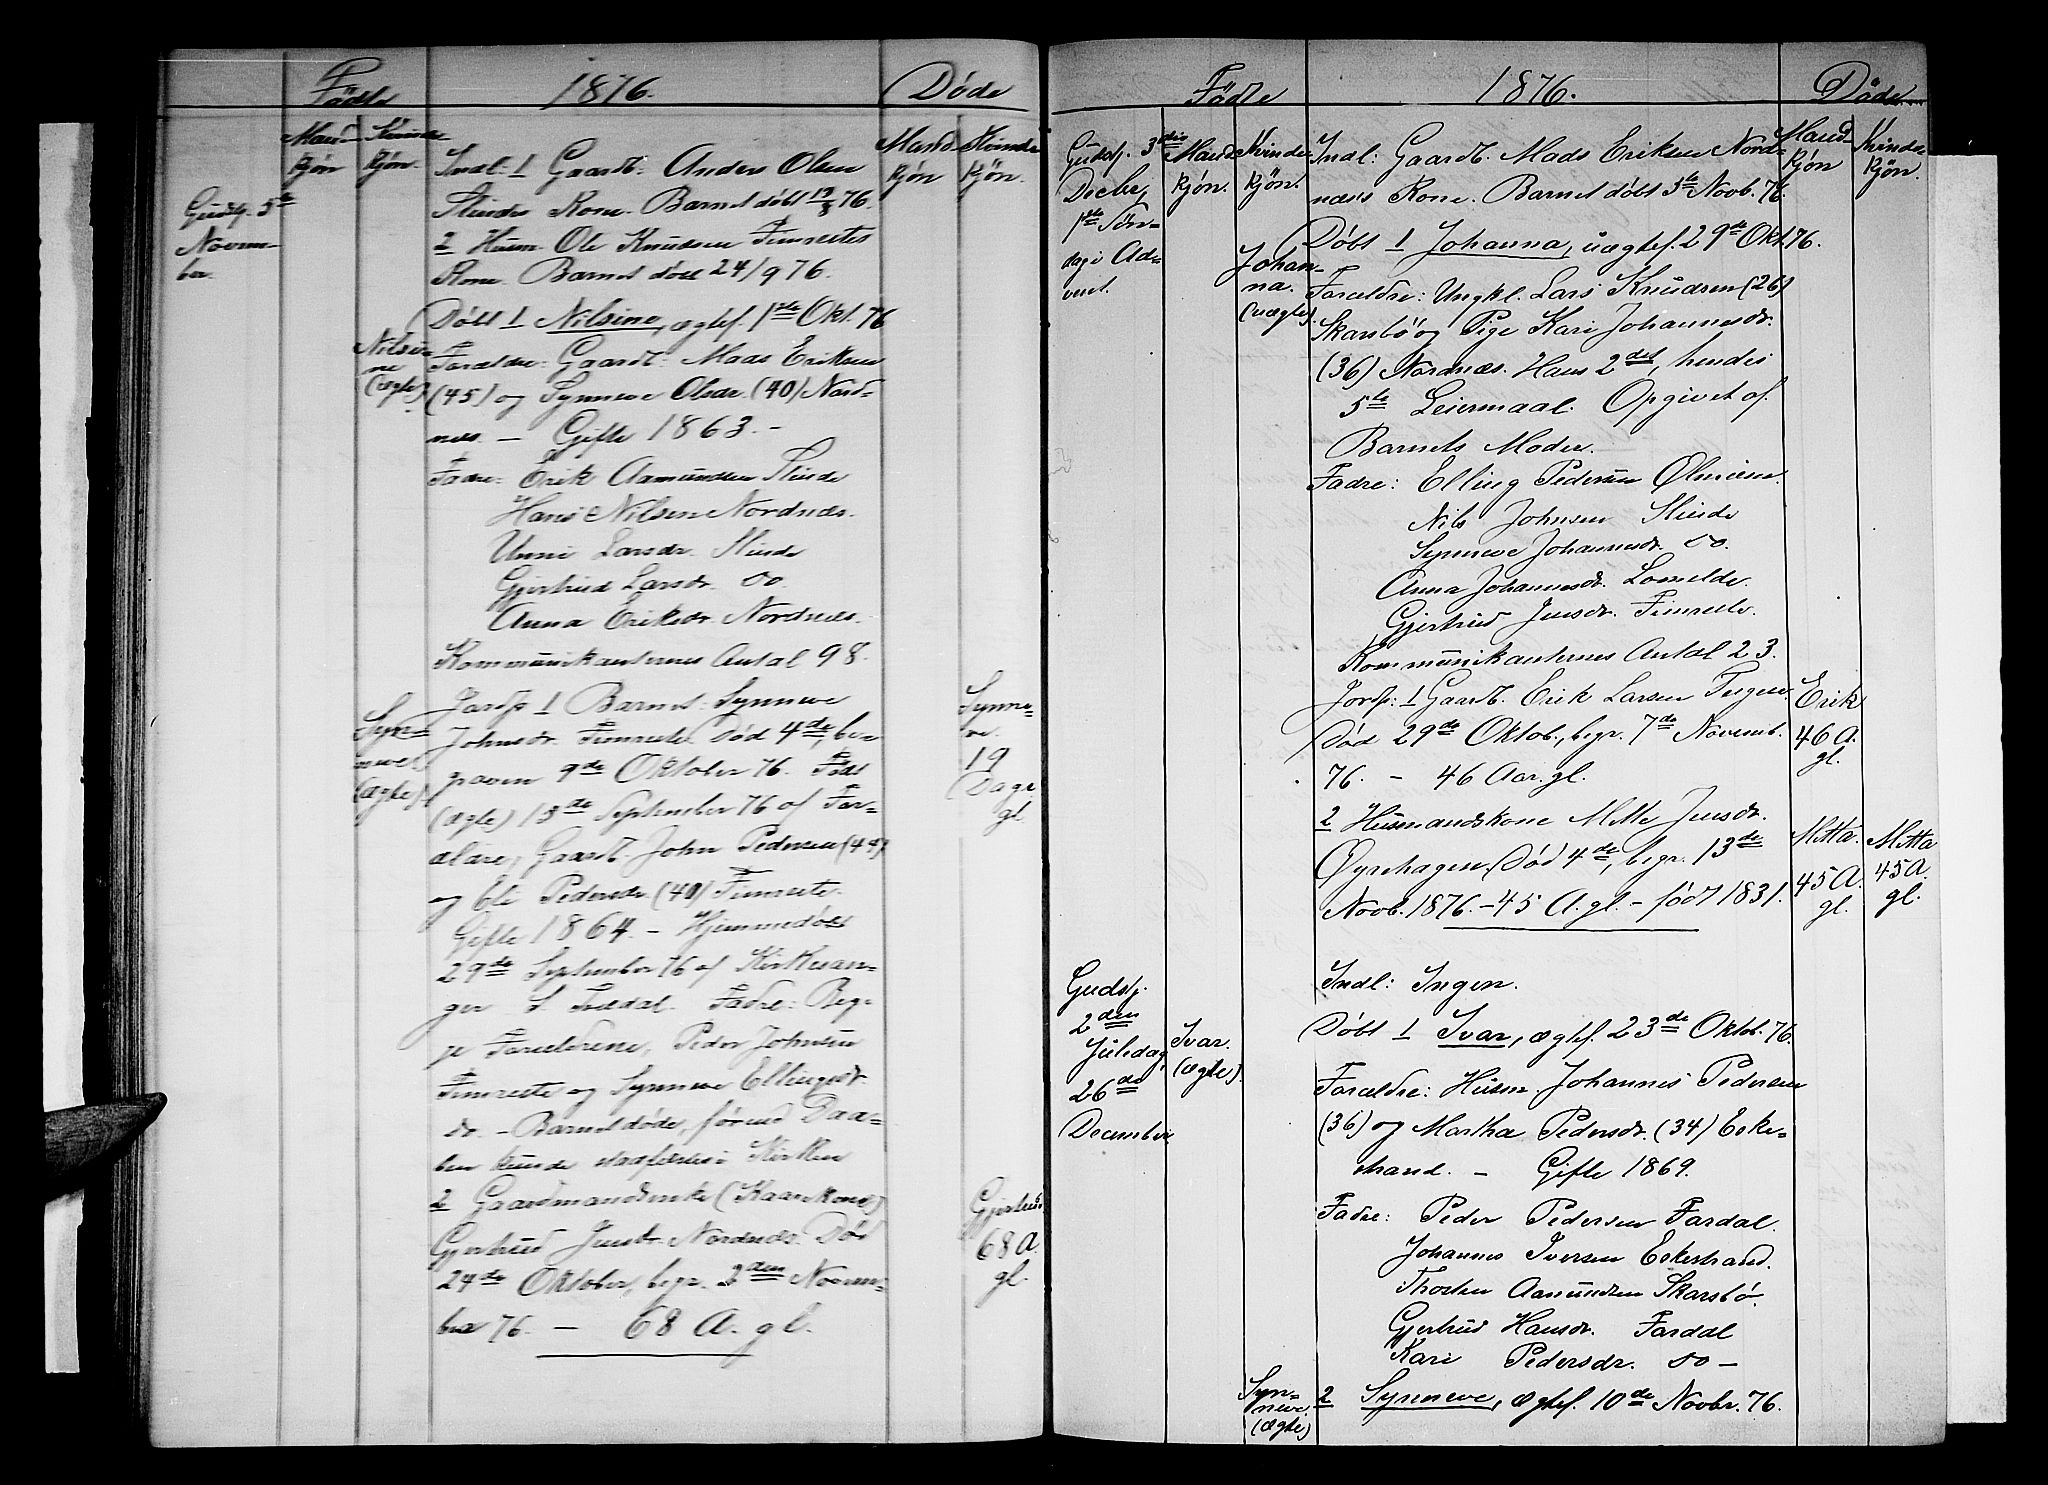 Födte 1876. Døde
Mand- Kvinde-
kjøn kjøn.
Mand- Kvinde-
kjøn kjøn.
Gudstj. 5te
Novem-
ber
Indl: 1 Gaardb: Anders Olsen
Slindes Kone. Barnet døbt 13/8 76.
2 Husm. Ole Knudsen Fimreites
Kone. Barnet døbt 24/9 76.
Døbt 1 Nilsine, ægtef. 1ste Okt. 76
Nilsi-
ne
(ægte)
Forældre: Gaardb: Mads Eriksen
(45) og Synneve Olsdr. (40) Nord-
næs. — Gifte 1863. -
Fadre: Erik Aamundsen Slinde
Hans Nilsen Nordnæs.
Unni Larsdr. Slinde
Gjertrud Larsdr. do.
Anna Eriksdr. Nordnæs.
Kommunikanternes Antal 98.
Jordf: 1 Barnet Synneve
Johnsdr. Fimreite. Død 4de, be-
graven 9de Oktober 76. Født
(ægte) 15de September 76 af For-
ældre, Gaardb. John Pedersen (44)
og Eli Pedersdr. (40) Fimreite.
Gifte 1864. — Hjemmedøbt
29de September 76 af Kirkesan-
ger S. Fardal. Fadre: Beg-
ge Forældrene, Peder Johnsen
Fimreite og Synneve Ellingsdr.
do. - Barnet døde, førend Daa-
ben kunde stadfæstes i Kirken
Syn-
neve
(ægte)
Synne-
ve.
19
Dage
gl.
2 Gaardmandsenke (Kaarkone)
Gjertrud Jensdr. Nordnæs. Død
24de Oktober, begr. 2den Novem-
ber 76. — 68 A. gl.
Gjertrud
68 A.
gl.
Födte 1876. Døde
Mand- Kvinde-
kjøn. kjön.
Mand- Kvinde-
kjøn kjøn.
Gudstj. 3die
Decbr,
1ste Søn-
dag i Ad-
vent.
Indl: Gaardb. Mads Eriksen Nord-
næs's Kone. Barnet døbt 5te Novb. 76.
Døbt 1 Johanna, uægtef. 29de Okt. 76.
Johan-
na.
(uægte).
Forældre: Ungkl. Lars Knudsen (26)
Skarsbø og Pige Kari Johannesdr.
(36) Nordnæs. Hans 2det, hendes
5te Leiermaal. Opgivet af
Barnets Moder.
Fadre: Elling Pedersen Ølmeim.
Nils Johnsen Slinde
Synneve Johannesdr. do.
Anna Johannesdr. Lomelde.
Gjertrud Jensdr. Fimreite.
Kommunikanternes Antal 23.
Jordf: 1 Gaardb. Erik Larsen
Død 29de Oktob., begr. 7de Novemb.
76. - 46 Aar gl.
Erik
46 A.
gl.
2 Husmandskone Mette Jensdr.
Øyrehagen. Død 4de, begr. 13de
Novb. 1876. - 45 A. gl. - født 1831.
Mitta.
45 A.
gl.
Mitta
45 A.
gl.
Gudstj.
2den
Juledag,
26de
December.
Indl: Ingen.
Døbt 1 Ivar, ægtef. 23de Oktob. 76.
Ivar.
(ægte).
Forældre: Husm. Johannes Pedersen
(36) og Martha Pedersdr. (34) Eske-
strand. — Gifte 1869.
Fadre: Peder Pedersen Fardal.
Johannes Iversen Eskestrand.
Thosten Aamundsen Skarsbø.
Gjertrud Hansdr. Fardal
Kari Pedersdr. do —
Syn-
neve
(ægte)
2 Synneve, ægtef. 10de Novbr. 76.